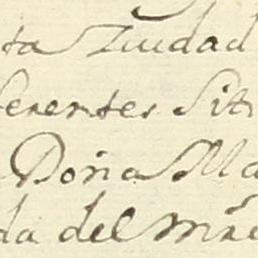 ta Ziudad
ferentes Sit
Doña Ma
da del Mrô